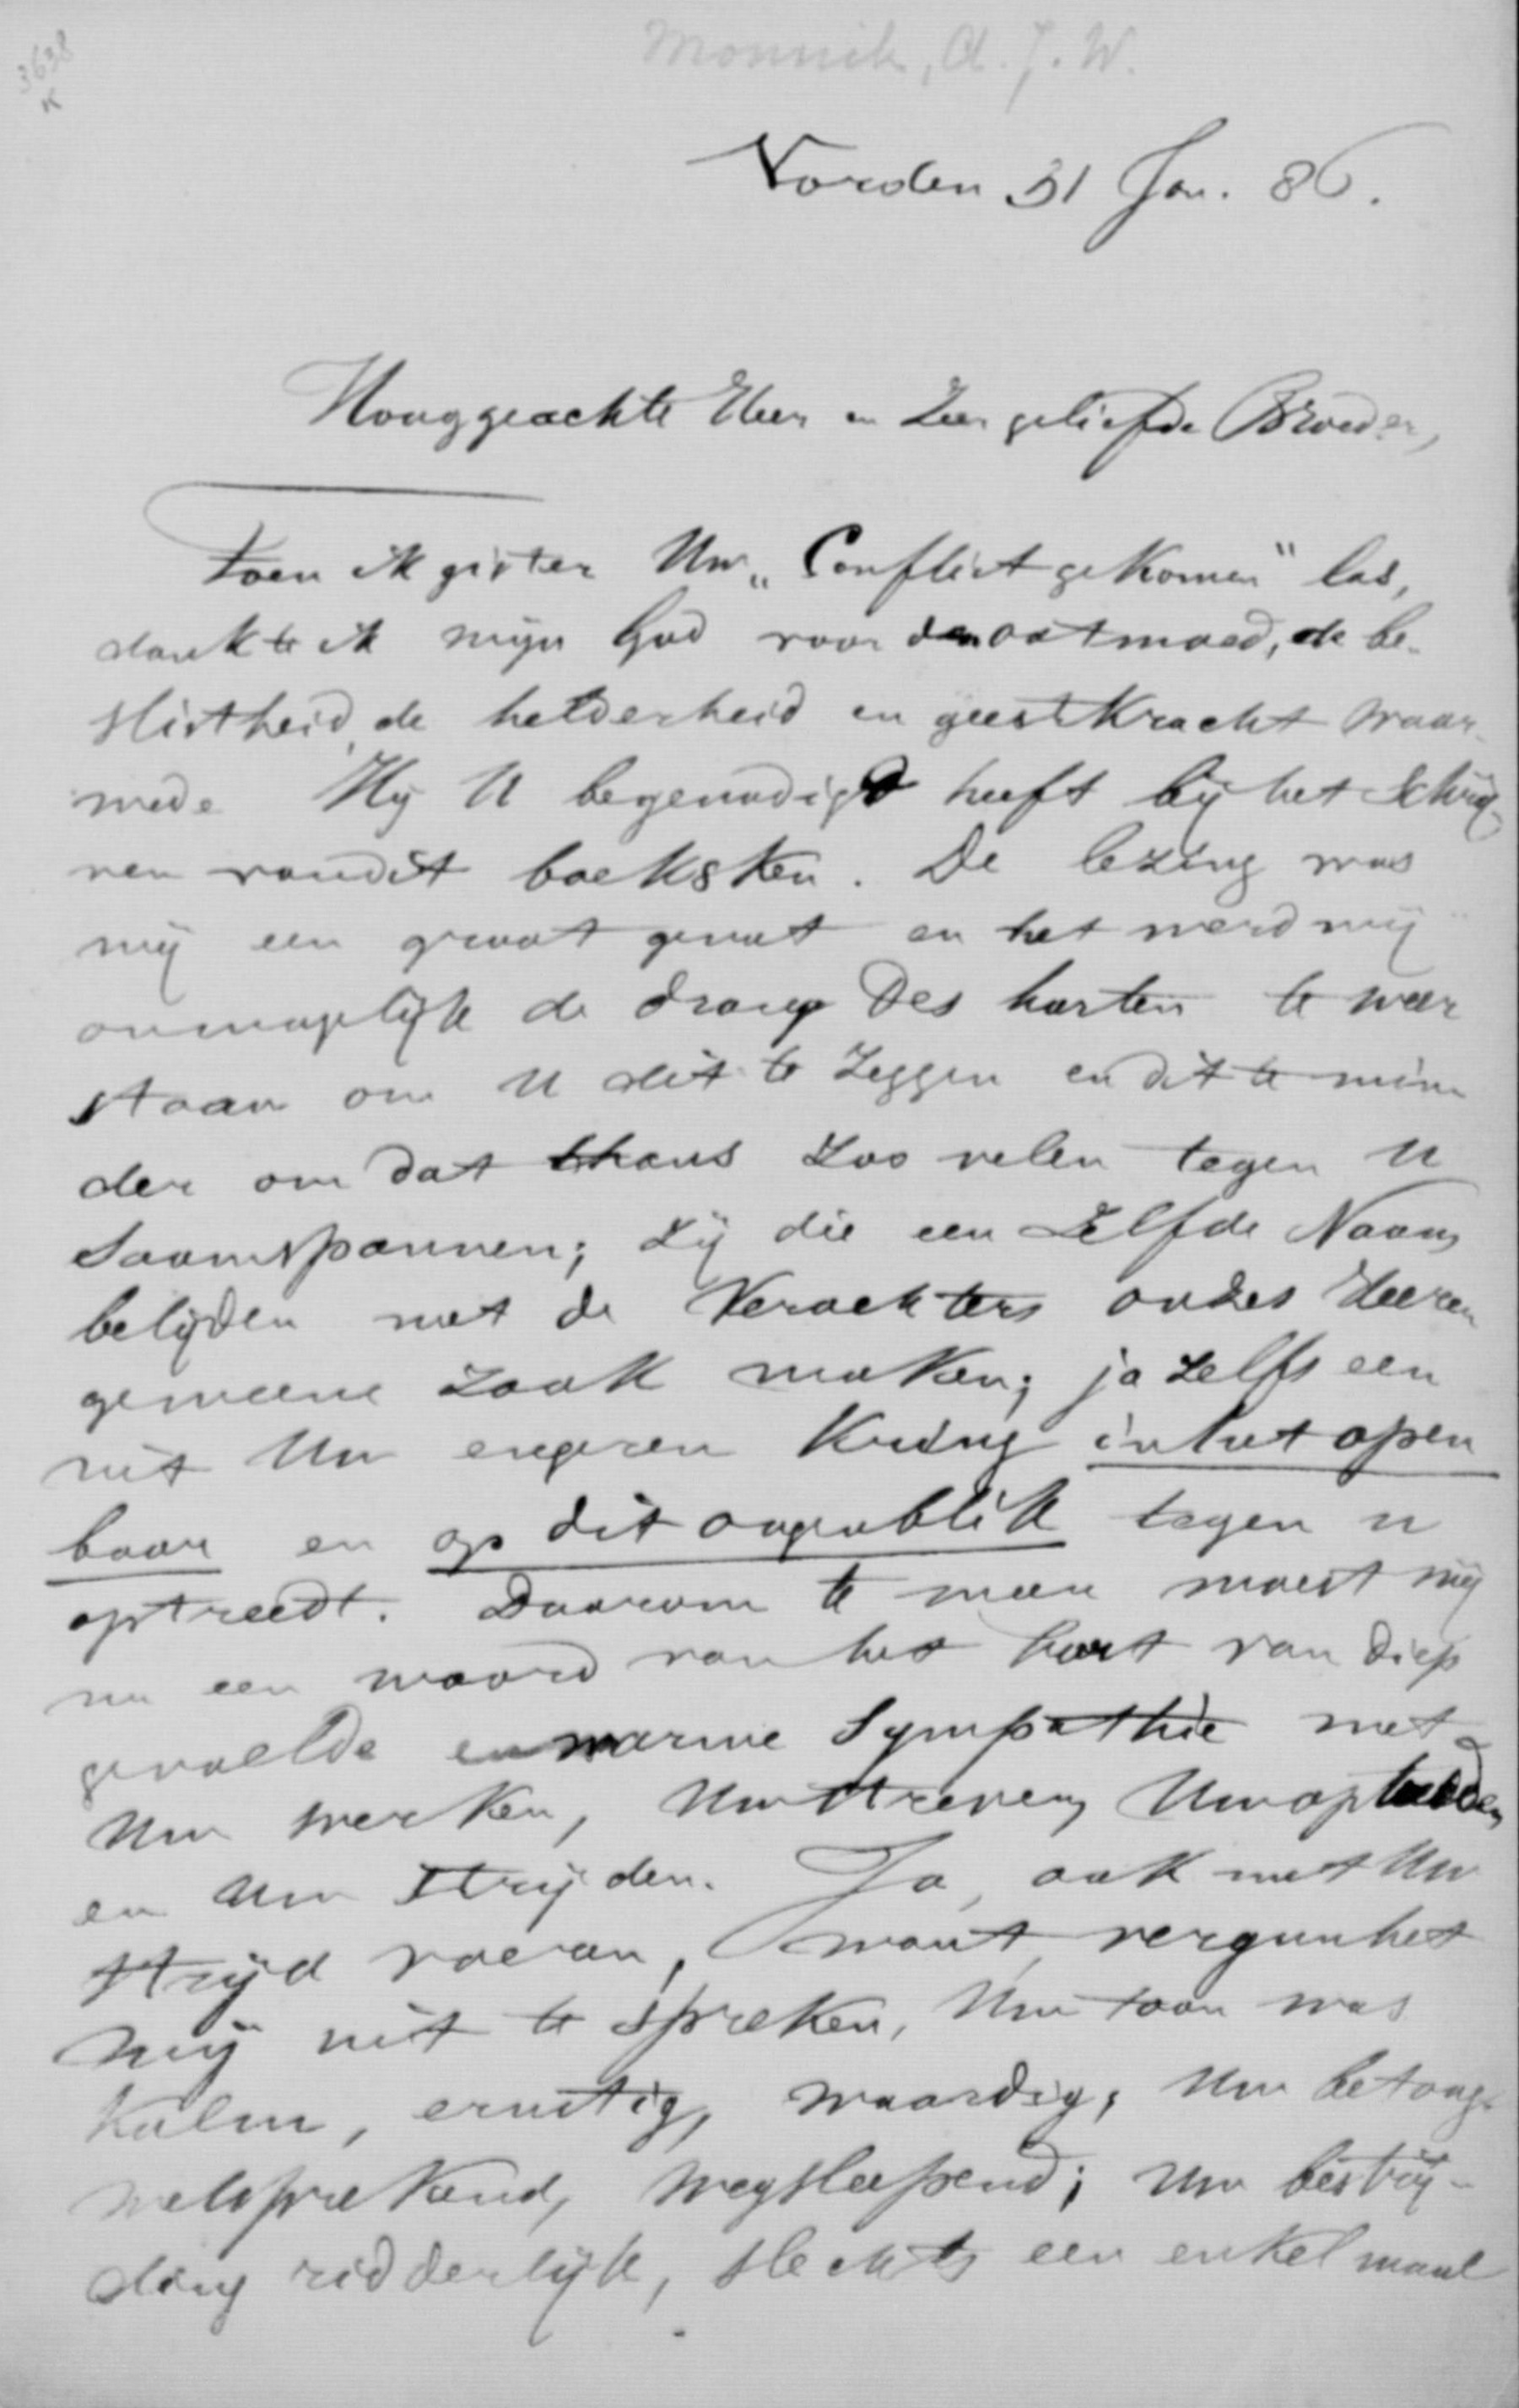 3638
K
Monnik, A. J. W.
Vorden 31 Jan. 86.
Hooggeachte Heer en Zeer geliefde Broeder,
Toen ik gister Uw „Conflict gekomen" las,
dankte ik mijn God voor den ootmoed, de be-
slistheid, de helderheid en geestkracht waar-
mede Hij U begenadigd heeft bij het schrij-
ven van dit boeksken. De lezing was
mij een groot genot en het werd mij
onmogelijk de drang des harten te weer
staan om U dit te zeggen en dit te min
der om dat thans zoo velen tegen U
saamspannen; zij die een zelfde Naam
belijden met de Verachters onzes Heeren
gemeene zaak maken; ja zelfs een
uit Uw engeren Kring in het open
baar en op dit oogenblik tegen u
optreedt. Daarom te meer moest mij
nu een woord van het hart van diep
gevoelde en warme Sympathie met
Uw werken, Uw streven, Uw optreden
en Uw strijden. Ja, ook met Uw
strijd voeren, want, vergun het
mij uit te spreken, Uw toon was
kalm, ernstig, waardig; Uw betoog
welsprekend, wegsleepend; Uw bestrij-
ding ridderlijk, slechts een enkel maal